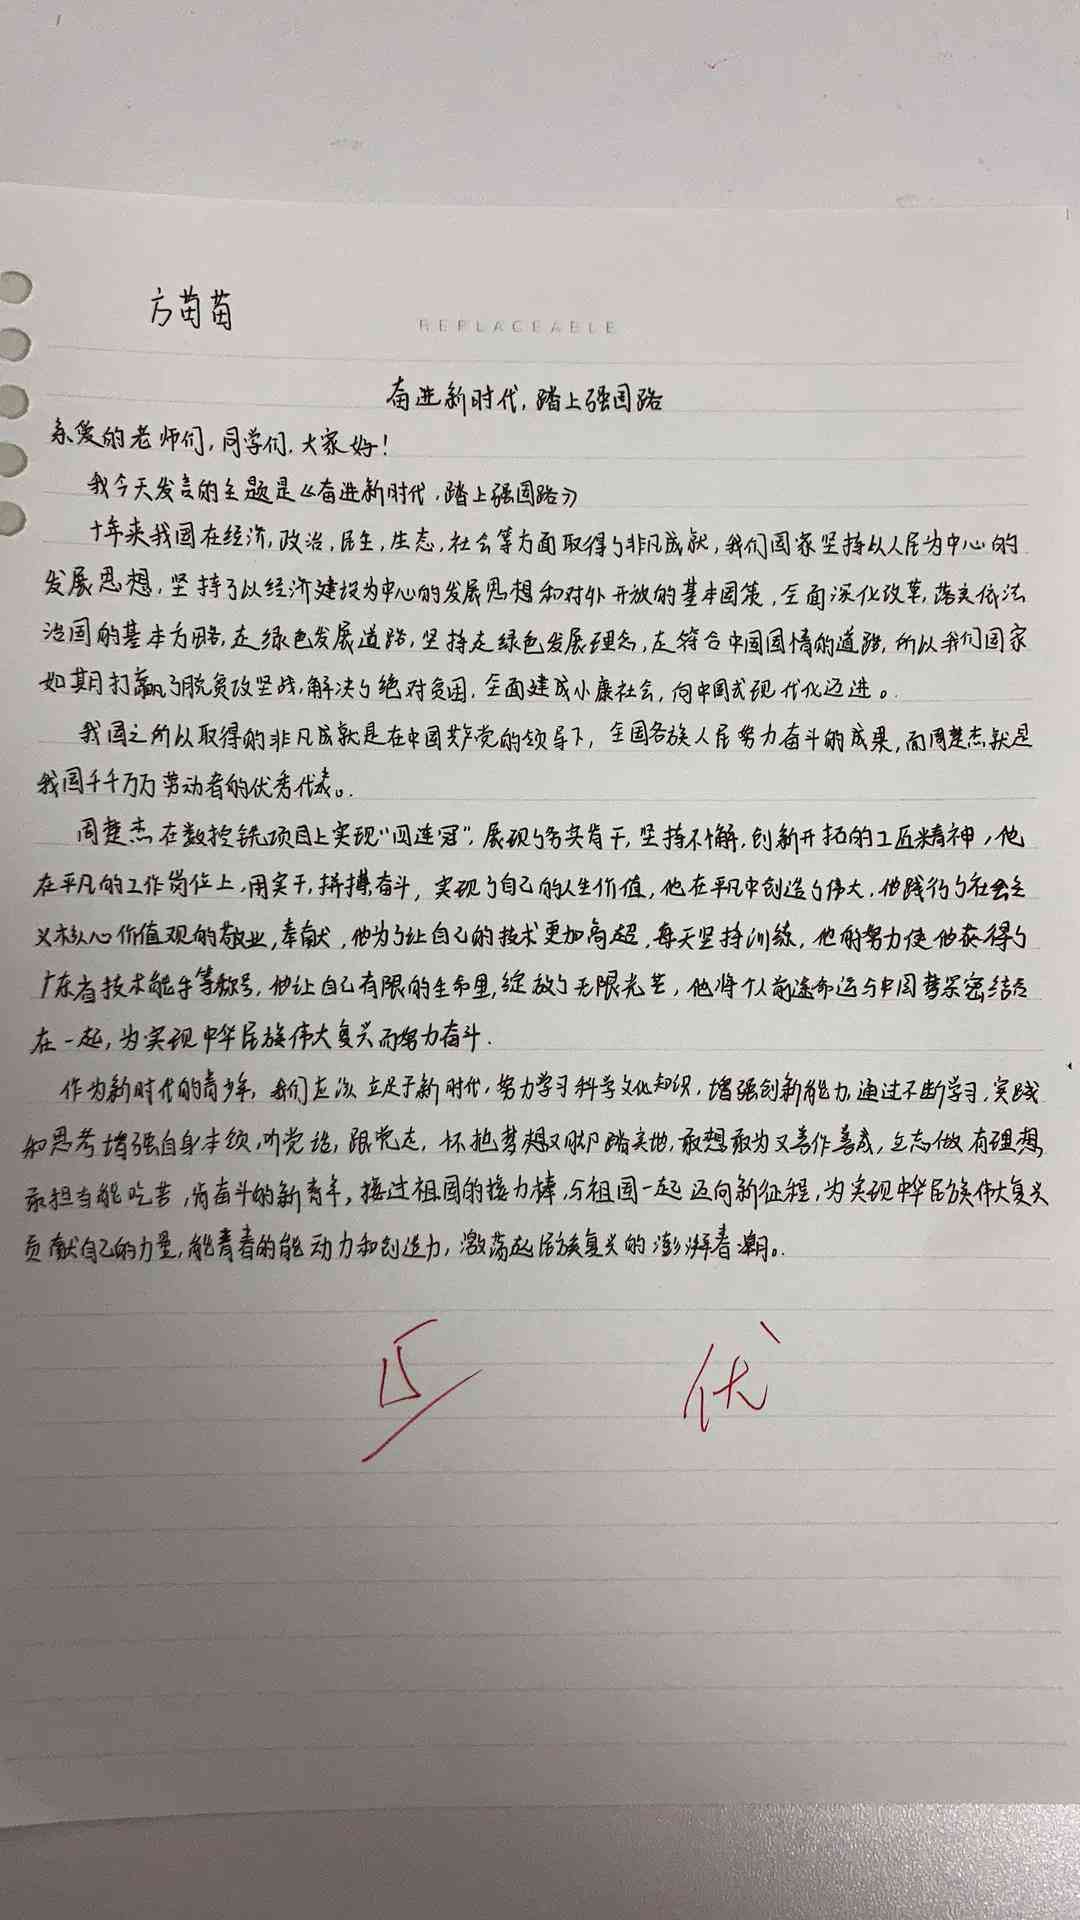 方苗苗
REPLACEABLE
奋进新时代,踏上强国路
亲爱的老师们,同学们,大家好!
我今天发言的主题是《奋进新时代,踏上强国路》
十年来我国在经济,政治,民生,生态,社会等方面取得了非凡成就,我们国家坚持以人民为中心的
发展思想,坚持了以经济建设为中心的发展思想和对外开放的基本国策,全面深化改革,落实依法
治国的基本方略,走绿色发展道路,坚持走绿色发展理念,走符合中国国情的道路,所以我们国家
如期打赢了脱贫攻坚战,解决了绝对贫困,全面建成小康社会,向中国式现代化迈进。
我国之所以取得的非凡成就是在中国共产党的领导下,全国各族人民努力奋斗的成果,而周楚杰就是
我国千千万万劳动者的优秀代表。
周楚杰在数控铣项目上实现“四连冠”,展现了务实肯干,坚持不懈,创新开拓的工匠精神,他
在平凡的工作岗位上,用实干,拼搏,奋斗,实现了自己的人生价值,他在平凡中创造了伟大,他践行了社会主
义核心价值观的敬业,奉献,他为了让自己的技术更加高超,每天坚持训练,他的努力使他获得了
广东省技术能手等称号,他让自己有限的生命里,绽放了无限光芒,他将个人前途命运与中国梦紧密结合
在一起,为实现中华民族伟大复兴而努力奋斗.
作为新时代的青少年,我们应该立足于新时代,努力学习科学文化知识,增强创新能力,通过不断学习,实践
和思考增强自身本领,听党话,跟党走,怀抱梦想又脚踏实地,敢想敢为又善作善成,立志做有理想,
敢担当能吃苦,肯奋斗的新青年,接过祖国的接力棒,与祖国一起迈向新征程,为实现中华民族伟大复兴
贡献自己的力量,能青春的能动力和创造力,激荡起民族复兴的澎湃春潮。
优